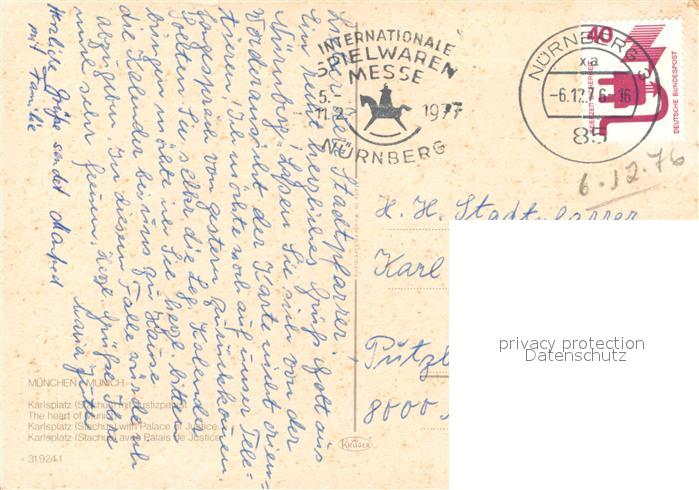 Lieber Herr Stadtpfarrer!
Ein recht herzliches Grüß Gott aus
Nürnberg. Lassen Sie sich von der
Vorderansicht der Karte nicht irri-
tieren. Ich möchte noch auf unser Tele-
fongespräch von gestern zurückkommen.
Sollten Sie sich die Leg. Kalender
bringen, möchte ich Sie herzl. bitten
die Kalender bei uns zu Hause
abzugeben. In diesem Falle würde ich
mich sehr freuen. Herzl. Grüße Ihre
Maria
Herzliche Grüße sendet Manfred
mit Familie
INTERNATIONALE
SPIELWAREN
MESSE
5.
11.2. 1977
NÜRNBERG
NÜRNBERG 3
xa
-6.12.76-16
85
40
JEDERZEIT SICHERHEIT
DEUTSCHE BUNDESPOST
6.12.76
H. H. Stadtpfarrer
Karl
Putzb
8000
privacy protection
Datenschutz
MÜNCHEN - MUNICH
Karlsplatz (Stachus) mit Justizpalast
The heart of Munich
Karlsplatz (Stachus) with Palace of Justice
Karlsplatz (Stachus) avec Palais de Justice
KRÜGER
319241